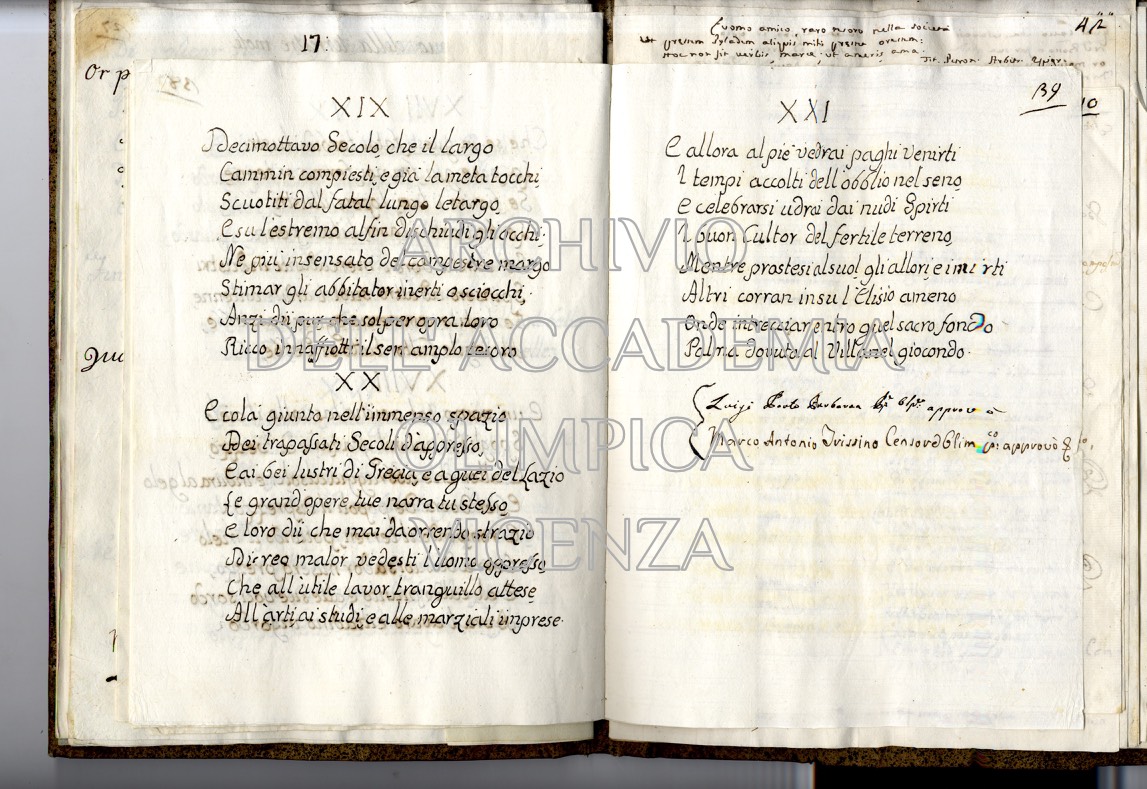 17.
Or p
XIX
Decimottavo Secolo, che il largo
Cammin compiesti, e già la meta tocchi,
Scuotiti dal fatal lungo letargo,
E su l'estremo alfin dischiudi gli occhi.
Ne più insensato del campestre margo
Stimar gli abbitator inerti o sciocchi,
Anzi dii pur che sol per opra loro
Ricco innaffiotti il sen amplo tesoro
XX
E colà giunto nell'immenso spazio
Dei trapassati Secoli dappresso,
E ai bei lustri di Grecia, e a quei del Lazio
Le grand'opere tue narra tu stesso
E loro dii che mai da orrendo strazio
Di reo malor vedesti l'Uomo oppresso
Che all'utile lavor tranquillo attese
All'arti, ai studi, e alle marziali imprese.
42
139
10
XXI
E allora al piè vedrai paghi venirti
I tempi accolti dell'obblio nel seno,
E celebrarsi udrai dai nudi Spirti
Il buon Cultor del fertile terreno,
Mentre prostesi al suol gli allori, e i mirti
Altri corran in su l'Elisio ameno
Onde intrecciar entro quel sacro fondo
Palma dovuta al Villanel giocondo.
Luigi Porto Barbaran approvò
Marco Antonio Trissino Censor d'Olim.co approvò
ARCHIVIO
DELL'ACCADEMIA
OLIMPICA
VICENZA